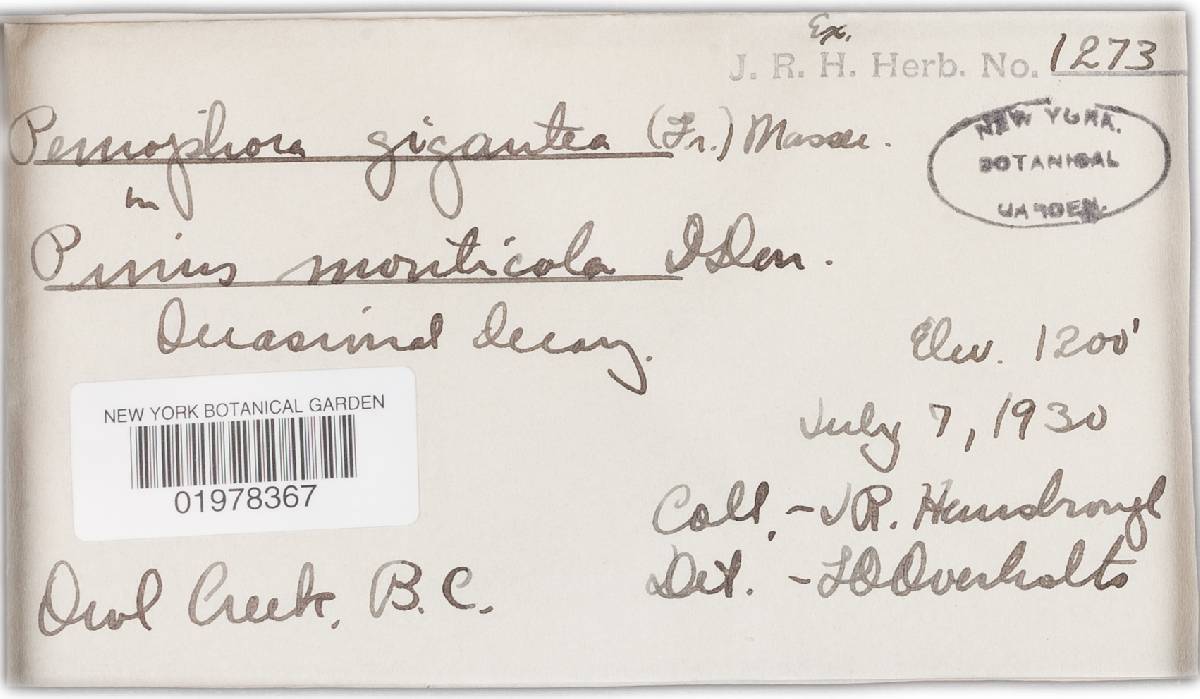 Ex.
J. R. H. Herb. No. 1273
Peniophora gigantea (Fr.) Massee.
NEW YORK
BOTANICAL
GARDEN.
on
Pinus monticola D.Don.
Occasional decay.
Elev. 1200'
NEW YORK BOTANICAL GARDEN
01978367
July 7, 1930
Coll. - J R. Hansbrough
Det. - L O Overholts
Owl Creek, B. C.